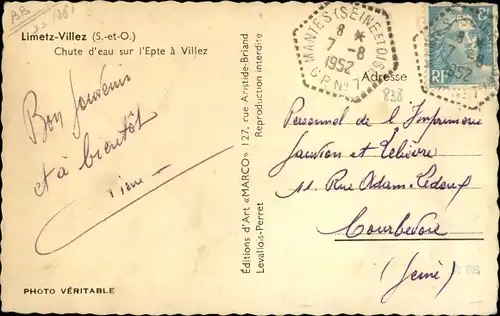 BB
Limetz-Villez (S.-et-O.)
Chute d'eau sur l'Epte à Villez
Bon Souvenir
et à bientôt
PHOTO VÉRITABLE
Éditions d'Art «MARCO» 127, rue Aristide-Briand
Levallois-Perret
Reproduction interdite
MANTES (SEINE-ET-OISE)
8 *
7 - 8
1952
C.P. N° 1
RF
7 - 8
1952
Adresse
238
Personnel de l'Imprimerie
et Lelièvre
11 Rue Adam-Ledoux
Courbevoie
(Seine)